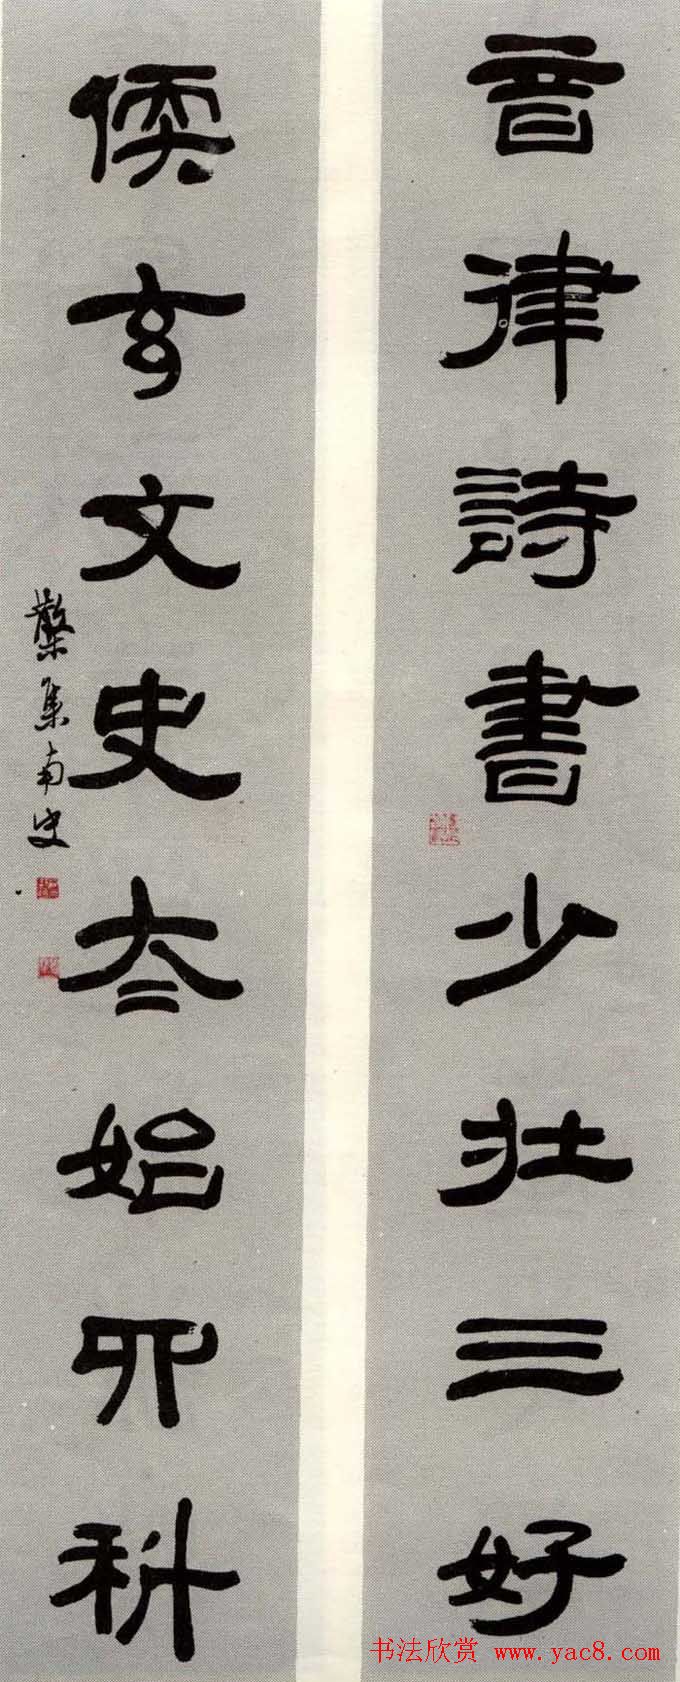 音律詩書少壯三好
儒玄文史夳始四科
集南史
书法欣赏 www.yac8.com